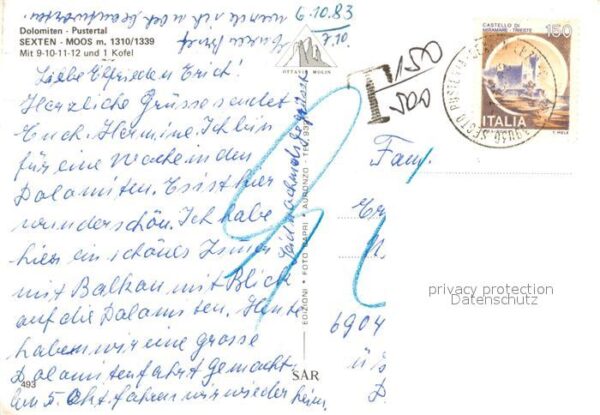 6.10.83
7.10.
Dolomiten - Pustertal
SEXTEN - MOOS m. 1310/1339
Mit 9-10-11-12 und 1 Kofel
OTTAVIO MOLIN
Liebe Elfriede u Erich!
Herzliche Grüsse sendet
Euch Hermine. Ich bin
für eine Woche in den
Dolomiten. Es ist hier
wunderschön. Ich habe
hier ein schönes Zimmer
mit Balkon mit Blick
auf die Dolomiten. Heute
haben wir eine grosse
Dolomitenfahrt gemacht.
Am 5. Okt. fahren wir wieder heim.
493
Seid nochmals gegrüsst
EDIZIONI • FOTO CAPRI • AURONZO - TEL. 93
SAR
T 150
500
CASTELLO DI
MIRAMARE - TRIESTE
150
ITALIA
Fam.
6904
privacy protection
Datenschutz